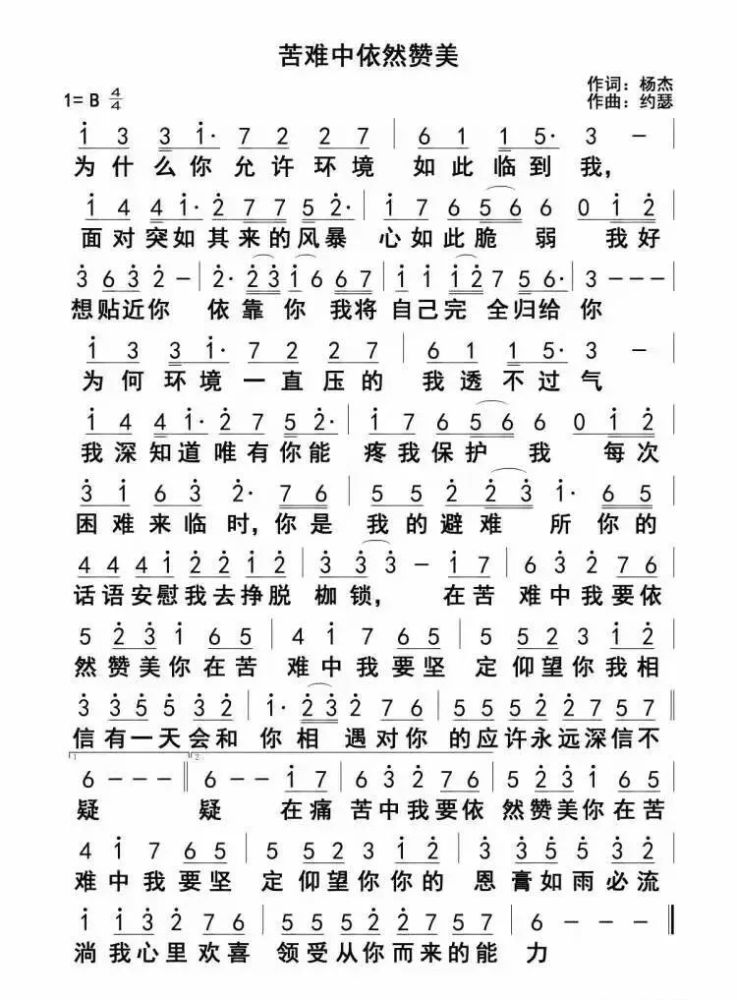 苦难中依然赞美
作词：杨杰
1= B 4/4 作曲：约瑟
1 3 3 1· 7 2 2 7 | 6 1 1 5· 3 — |
为什么你允许环境 如此临到我，
1 4 4 1· 2 7 7 5 2· | 1 7 6 5 6 6 0 1 2 |
面对突如其来的风暴 心如此脆 弱 我好
3 6 3 2 — | 2· 2 3 1 6 6 7 | 1 1 1 2 7 5 6· | 3 — — — |
想贴近你 依靠你 我将自己完 全归给你
1 3 3 1· 7 2 2 7 | 6 1 1 5· 3 — |
为何环境一直压的 我透不过气
1 4 4 1· 2 7 5 2· | 1 7 6 5 6 6 0 1 2 |
我深知道唯有你能 疼我保护 我 每次
3 1 6 3 2· 7 6 | 5 5 2 2 3 1· 6 5 |
困难来临时，你是 我的避难 所你的
4 4 4 1 2 2 1 2 | 3 3 3 — 1 7 | 6 3 2 7 6 |
话语安慰我去挣脱 枷锁， 在苦 难中我要依
5 2 3 1 6 5 | 4 1 7 6 5 | 5 5 2 3 1 2 |
然赞美你在苦 难中我要坚 定仰望你我相
3 3 5 5 3 2 | 1· 2 3 2 7 6 | 5 5 5 2 2 7 5 7 ||
信有一天会和 你相 遇对你 的应许永远深信不
1. 2.
6 — — — || 6 — — 1 7 | 6 3 2 7 6 | 5 2 3 1 6 5 |
疑 疑 在痛 苦中我要依 然赞美你在苦
4 1 7 6 5 | 5 5 2 3 1 2 | 3 3 5 5 3 2 |
难中我要坚 定仰望你你的 恩膏如雨必流
1 1 3 2 7 6 | 5 5 5 2 2 7 5 7 | 6 — — — ||
淌我心里欢喜 领受从你而来的能 力